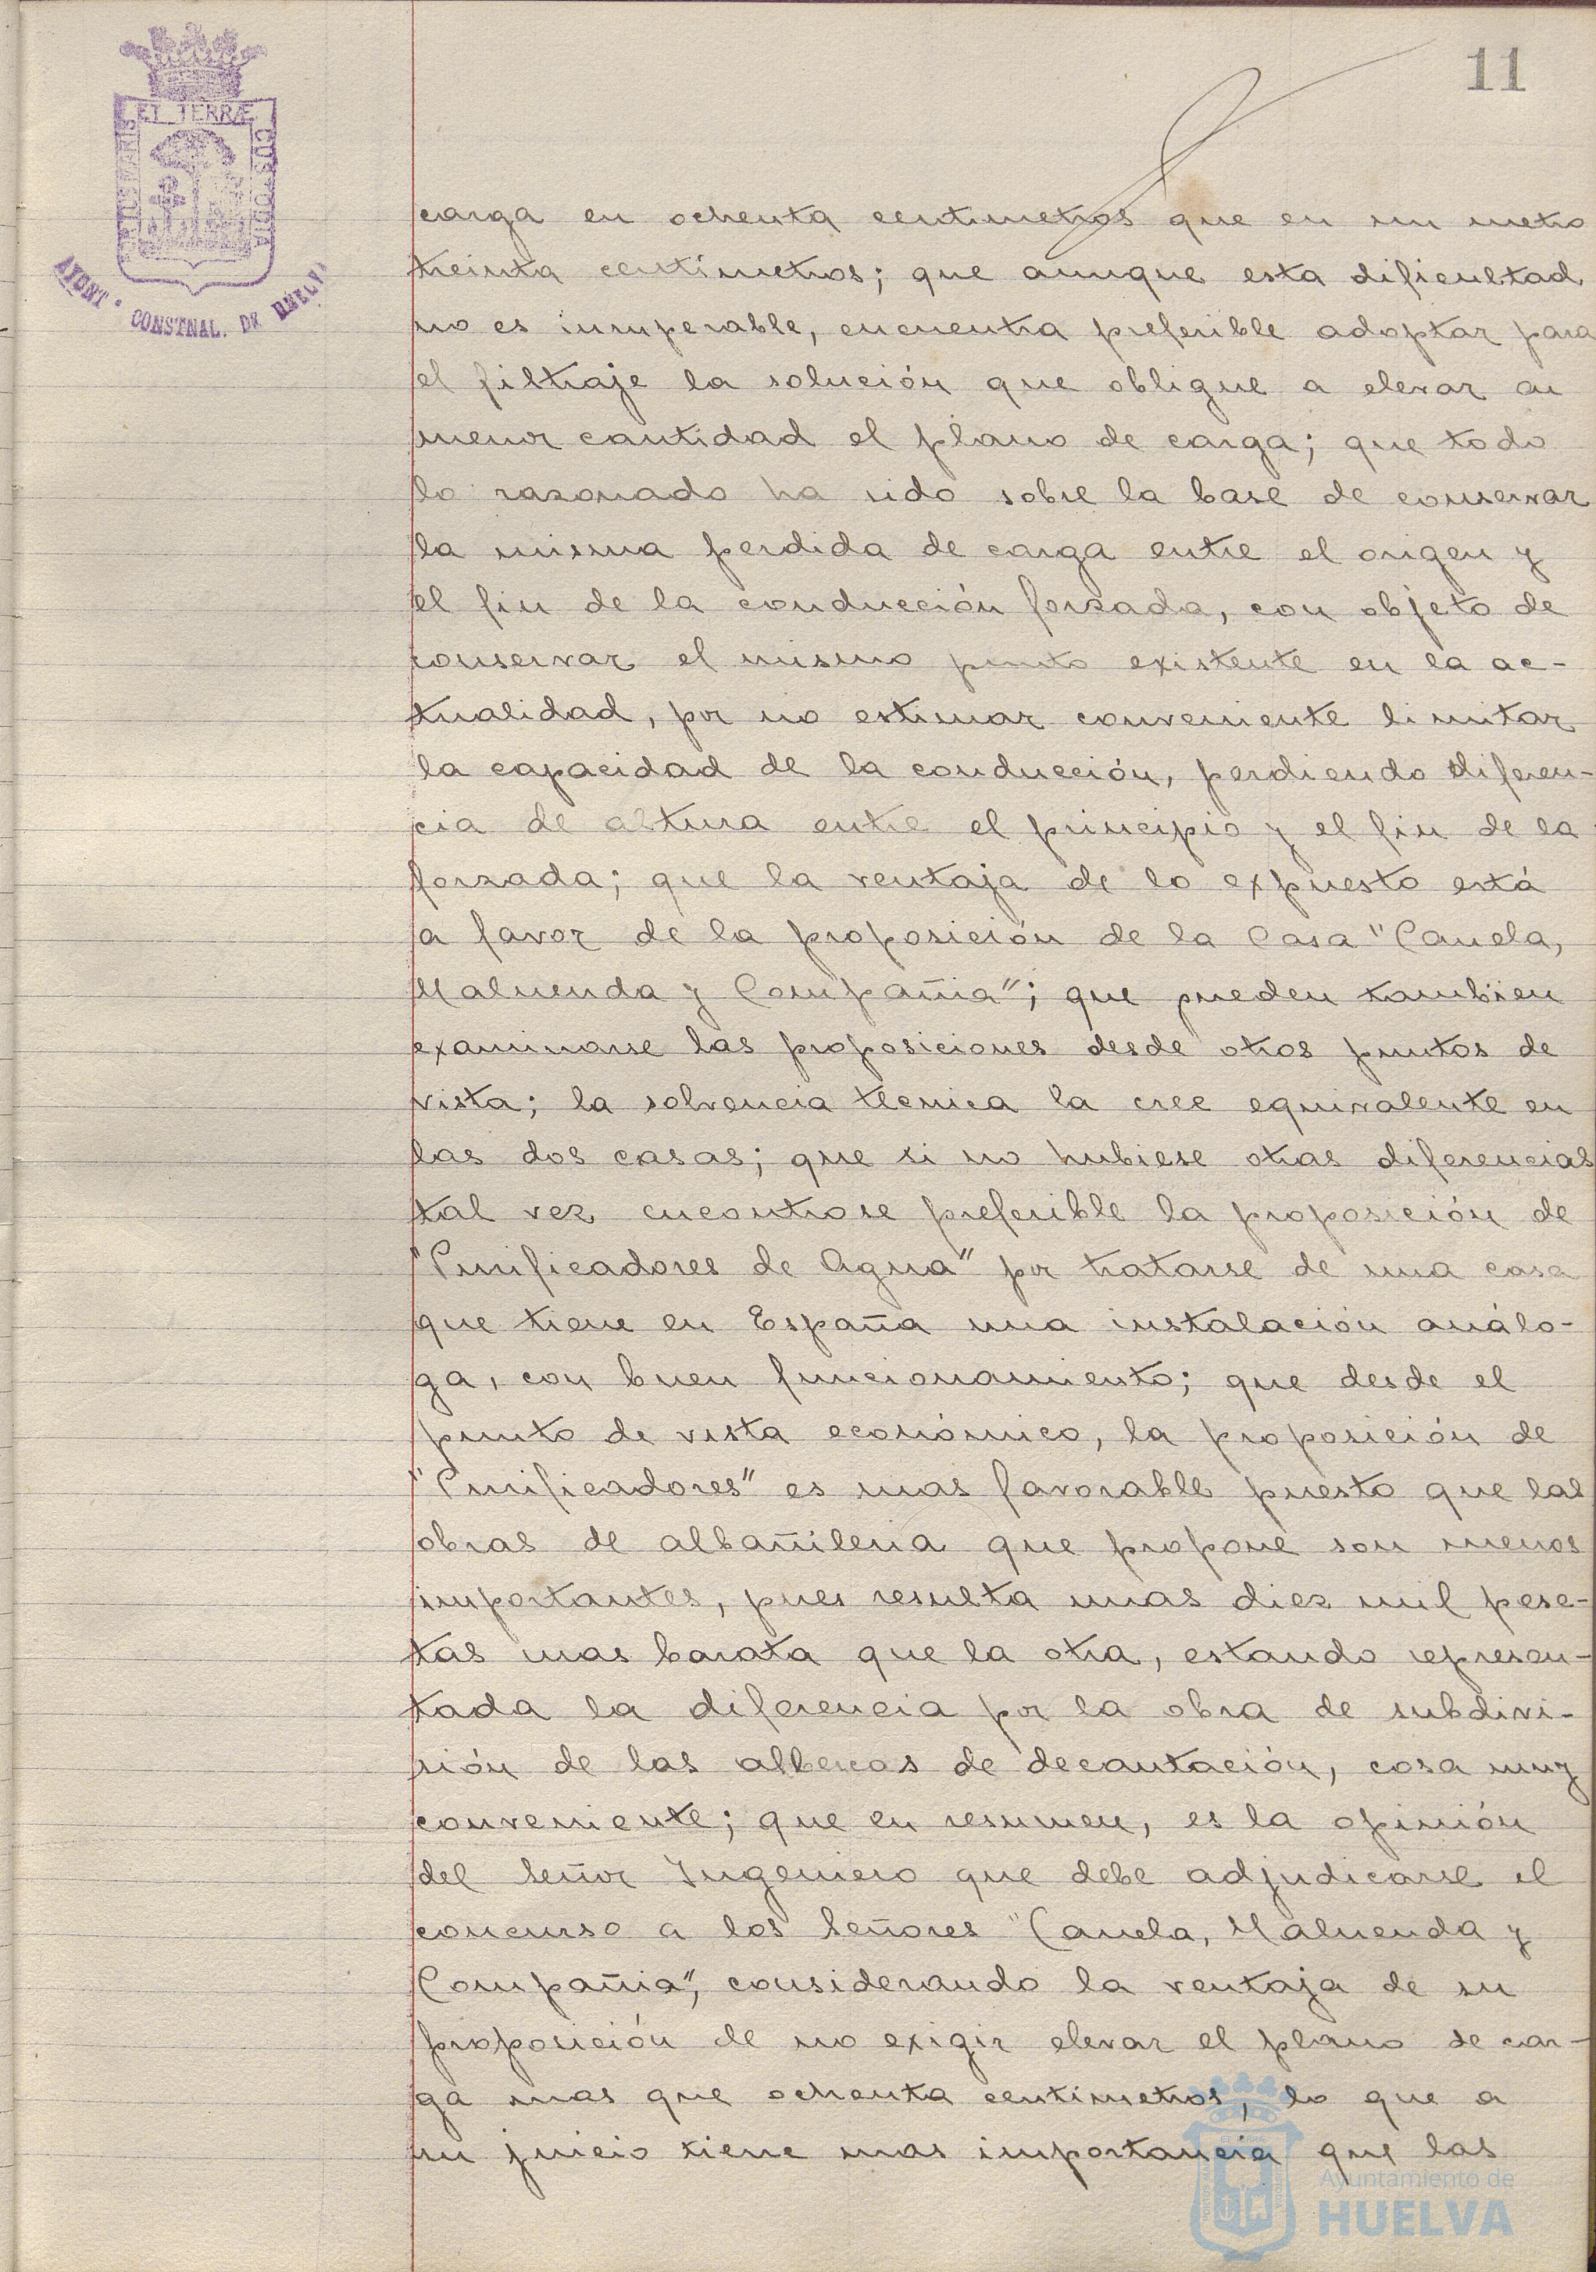 11
ET TERRÆ
PORTUS MARIS
CUSTODIA
AYUNT. CONSTNAL. DE HUELVA
carga en ochenta centimetros que en un metro
treinta centímetros; que aunque esta dificultad
no es insuperable, encuentra preferible adoptar para
el filtraje la solución que obligue a elevar en
menor cantidad el plano de carga; que todo
lo razonado ha sido sobre la base de conservar
la misma perdida de carga entre el origen y
el fin de la conducción forzada, con objeto de
conservar el mismo punto existente en la ac-
tualidad, por no estimar conveniente limitar
la capacidad de la conducción, perdiendo diferen-
cia de altura entre el principio y el fin de la
forzada; que la ventaja de lo expuesto está
a favor de la proposición de la Casa "Canela,
Maluenda y Compañia"; que pueden tambien
examinarse las proposiciones desde otros puntos de
vista; la solvencia tecnica la cree equivalente en
las dos casas; que si no hubiese otras diferencias
tal vez encontrase preferible la proposición de
"Purificadores de Agua" por tratarse de una casa
que tiene en España una instalación análo-
ga, con buen funcionamiento; que desde el
punto de vista económico, la proposición de
"Purificadores" es mas favorable puesto que las
obras de albañileria que propone son menos
importantes, pues resulta unas diez mil pese-
tas mas barata que la otra, estando represen-
tada la diferencia por la obra de subdivi-
sión de las albercas de decantación, cosa muy
conveniente; que en resumen, es la opinión
del Señor Ingeniero que debe adjudicarse el
concurso a los Señores "Canela, Maluenda y
Compañia", considerando la ventaja de su
proposición de no exigir elevar el plano de car-
ga mas que ochenta centímetros, lo que a
su juicio tiene mas importancia que las
Ayuntamiento de
HUELVA